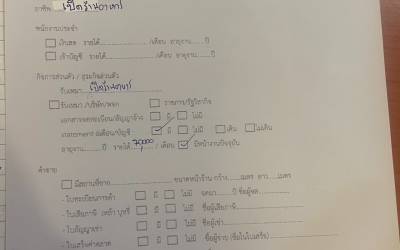 อาชีพ เปิดร้านอาหาร
พนักงานประจำ
เงินสด รายได้ /เดือน อายุงาน ปี
เข้าบัญชี รายได้ /เดือน อายุงาน ปี
กิจการส่วนตัว / ธุรกิจส่วนตัว
รับเหมา เปิดร้านอาหาร
รับเหมา /บริษัท/หจก ราชการ/รัฐวิสาหกิจ
เอกสารจดทะเบียน/สัญญาจ้าง มี ไม่มี
statement 6เดือน/บัญชี มี ไม่มี เดิน ไม่เดิน
อายุงาน ปี รายได้ 70,000 / เดือน มีหน้างานปัจจุบัน
ค้าขาย
มีสถานที่ขาย ขนาดหน้าร้าน กว้าง เมตร ยาว เมตร
- ใบทะเบียนการค้า มี ไม่มี ปี ชื่อผู้จด
- ใบเสียภาษี เหล้า บุหรี่ มี ไม่มี ชื่อผู้เสียภาษี
- ใบสัญญาเช่า มี ไม่มี ชื่อผู้เช่า
- ใบเสร็จค่าตลาด มี ไม่มี ชื่อผู้จ่าย (ชื่อในใบเสร็จ)